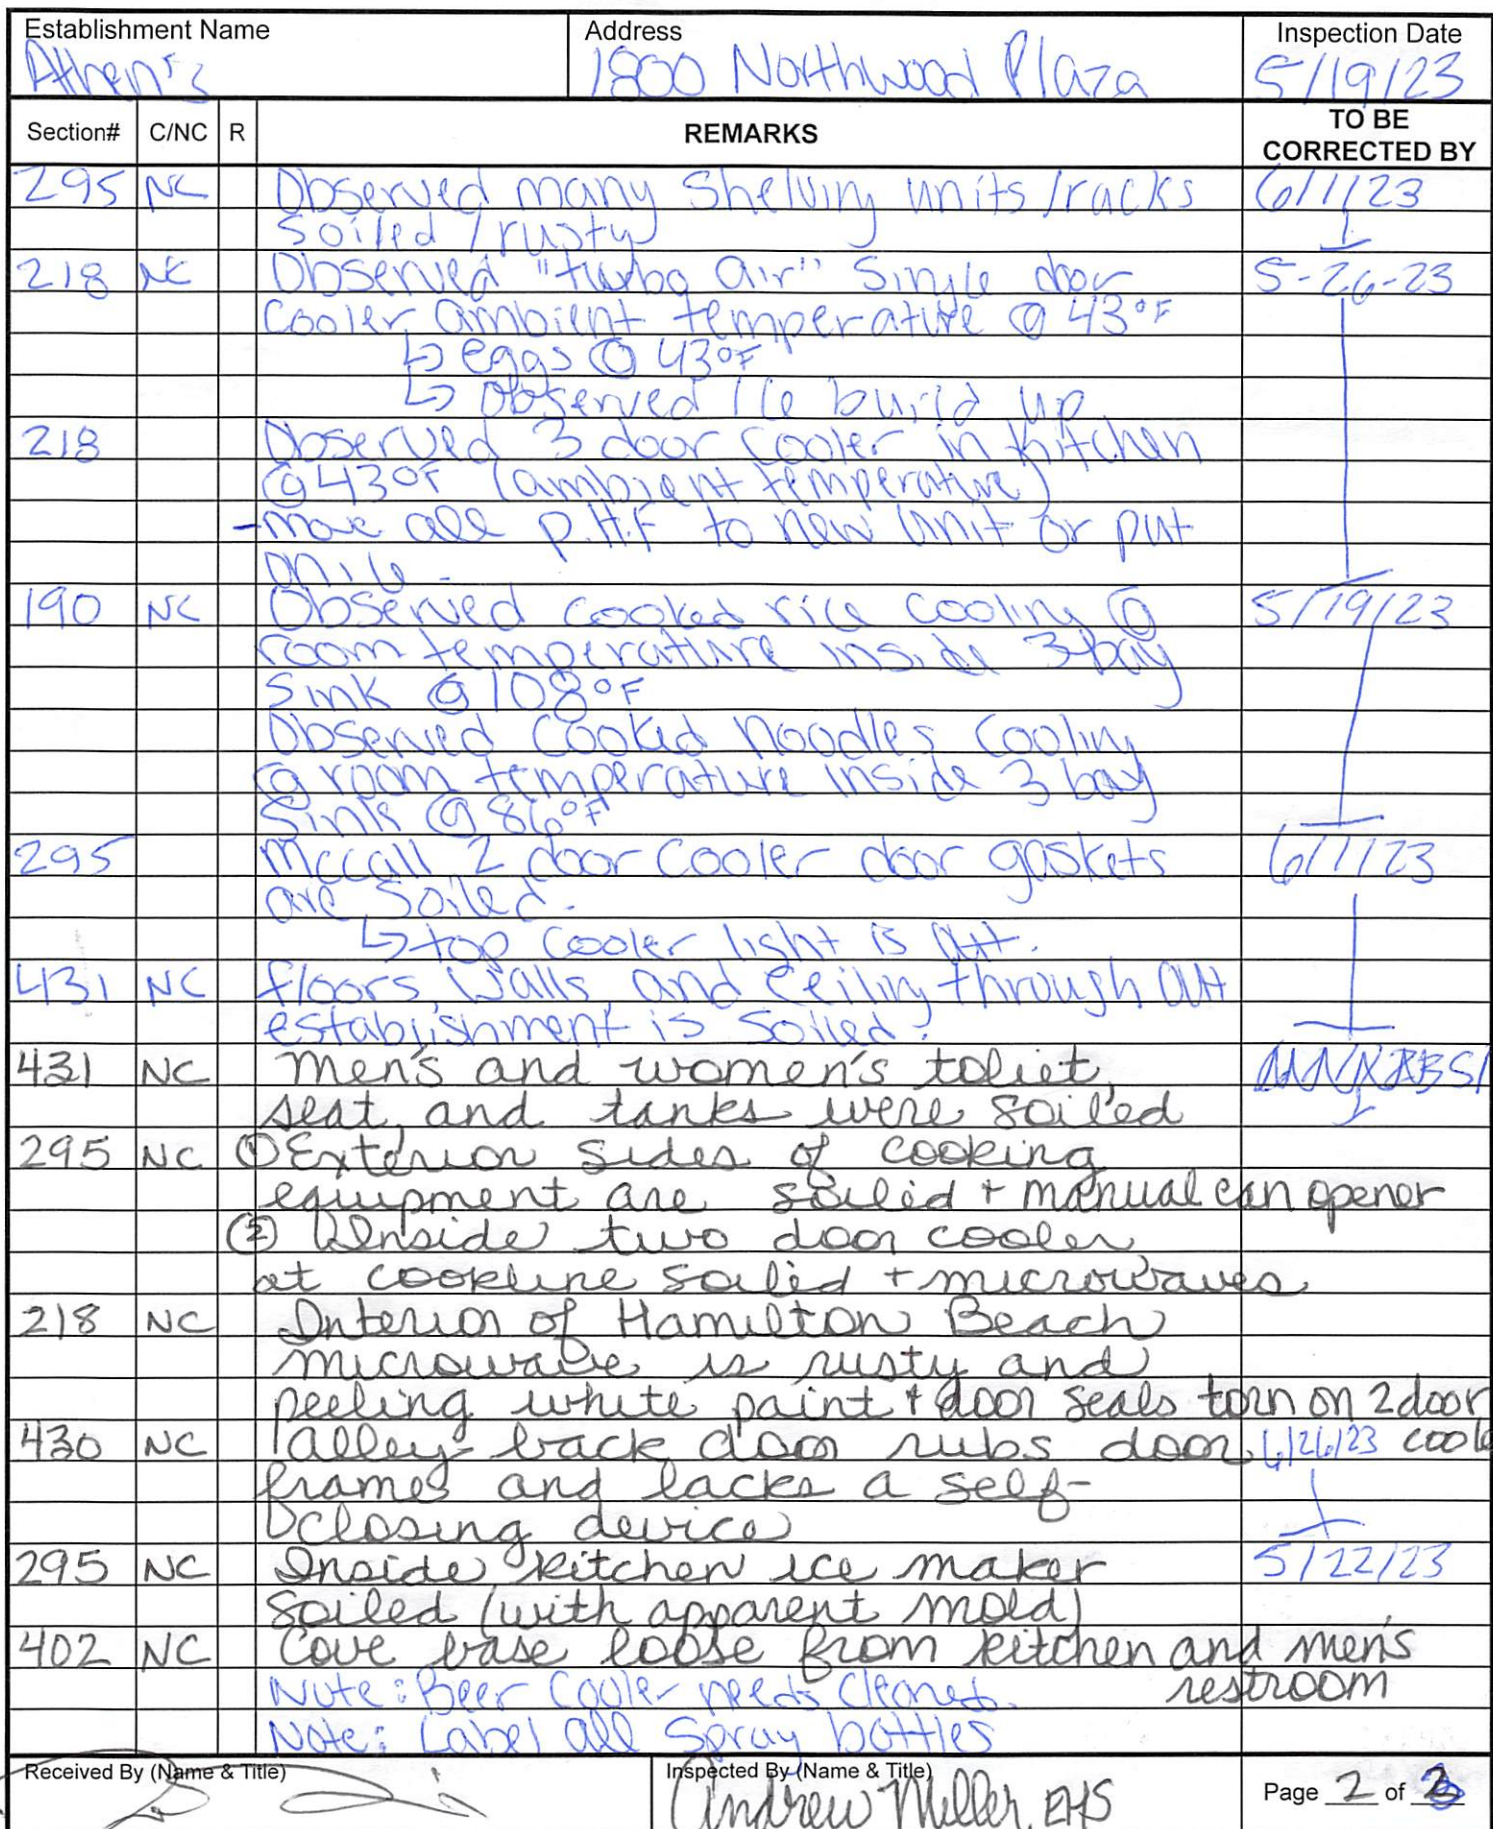 Establishment Name Address Inspection Date
Athen's 1800 Northwood Plaza 5/19/23
Section# C/NC R REMARKS TO BE CORRECTED BY
295 NC Observed many Shelving units/racks 6/1/23
soiled/rusty
218 NC Observed "turbo air" Single door 5-26-23
Cooler ambient temperature @ 43°F
↳ eggs @ 43°F
↳ Observed ice build up
218 Observed 3 door cooler in kitchen
@ 43°F (ambient temperature)
- move all P.H.F to new unit or put
on ice.
190 NC Observed cooked rice cooling @ 5/19/23
room temperature inside 3-bay
sink @ 108°F
Observed Cooked Noodles Cooling
@ room temperature inside 3 bay
sink @ 86°F
295 Mccall 2 door cooler door gaskets 6/1/23
are soiled.
↳ top cooler light is out.
431 NC floors, walls, and ceiling through out
establishment is soiled.
431 NC Men's and women's toliet,
seat, and tanks were soiled
295 NC ① Exterior sides of cooking
equipment are soiled + manual can opener
② Inside two door cooler
at cookline soiled + microwaves
218 NC Interior of Hamilton Beach
microwave is rusty and
peeling white paint + door seals torn on 2 door
430 NC alley back door rubs door 6/26/23 cooler
frames and lacks a self-
closing device
295 NC Inside kitchen ice maker 5/22/23
soiled (with apparent mold)
402 NC Cove base loose from kitchen and men's
restroom
Note: Beer Cooler needs cleaned.
Note: Label all Spray bottles
Received By (Name & Title) Inspected By (Name & Title)
Andrew Miller, EHS Page 2 of